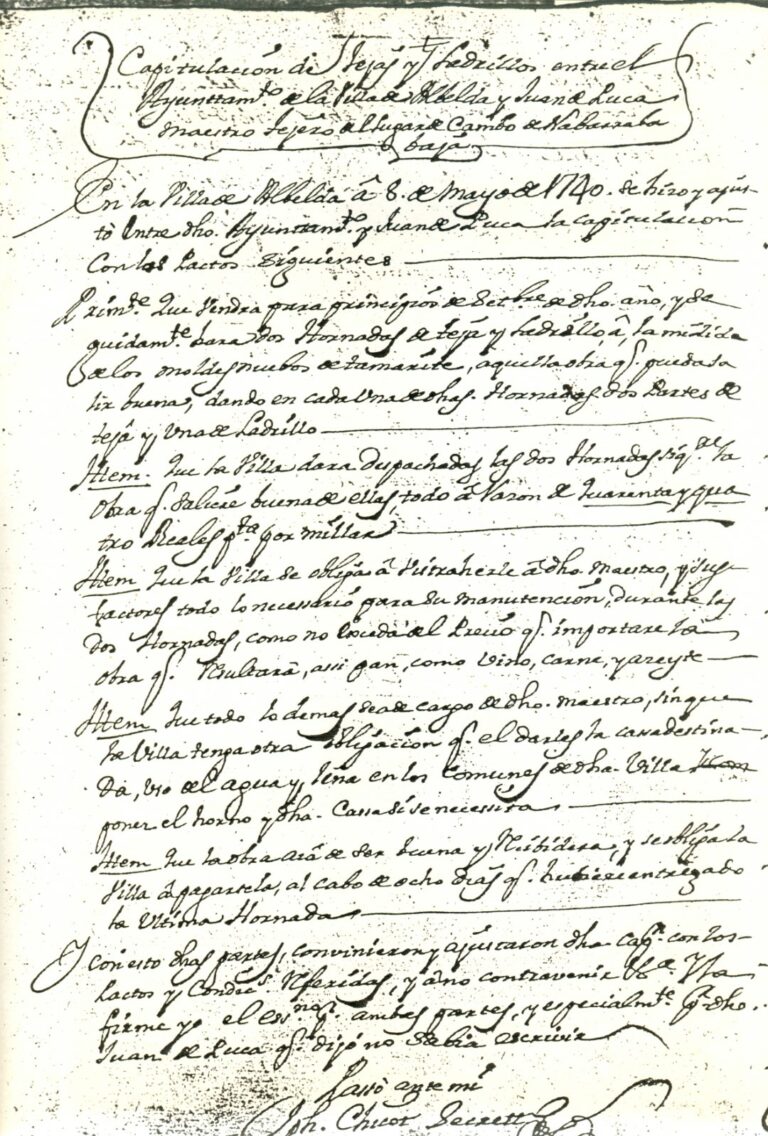 Capitulación de Tejas y Ladrillos entre el
Ayunttam.to de la Villa de Albelda y Juan de Luca
maestro tejero del Lugar de Cambo de Nabarra la
baja
En la Villa de Albelda â 8. de Mayo de 1740. se hizo y ajus-
tò entre dho. Ayunttam.to y Juan de Luca la capitulacion
Con los Pactos siguientes
Prim.te Que vendra para principios de Setbre. de dho. año, y se
guidam.te hara dos Hornadas de teja y Ladrillo, â la medida
de los moldes nuebos de tamarite, aquella obra q. pueda sa
lir buena, dando en cada una de dhas. Hornadas dos Partes de
teja y una de Ladrillo
Ittem. Que la Villa dara despachadas las dos Hornadas
obra q. saliere buena de ellas, todo â razon de quarenta y qua
tro Reales p.ta por millar
Ittem Que la Villa se obliga â dho. maestro, y sus
factores todo lo necessario para su manutención, durante las
dos Hornadas, como no exceda del Precio q. importare la
obra q. resultarà, assi pan, como vino, carne, y azeyte
Ittem Que todo lo demas sea de cargo de dho. maestro, sin que
la Villa tenga otra obligación q. el darles la cassa destina-
da, uso del agua y leña en los comunes de dha. Villa
poner el horno y dha. Cassa si se necessita
Ittem Que la obra aia de ser buena y Recibidera, y se obliga la
Villa â pagarsela, al cabo de ocho dias q. hubiere entregado
la ultima Hornada
Y con esto dhas partes, convinieron y ajustaron dha cap.n con los
Pactos y Condic.s Referidas, y â no contravenir
firme yo el ess.no p.r ambas partes, y especialm.te p.r dho.
Juan de Luca q. dijo no sabia escrivir
Passò ante mi
Jph. Chicot Secrett.o